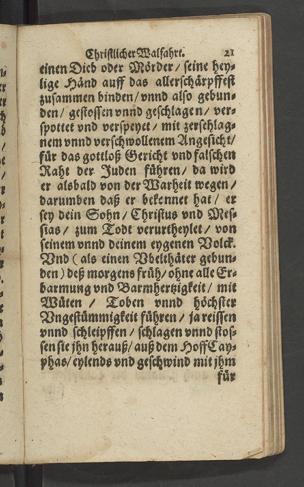 Christlicher Walfahrt. 21
einen Dieb oder Mörder / seine hey-
lige Händ auff das allerschärpffest
zusammen binden / vnnd also gebun-
den / gestossen vnnd geschlagen / ver-
spottet vnd verspeyet / mit zerschlag-
nem vnnd verschwollenem Angesicht /
für das gottloß Gericht vnd falschen
Raht der Juden führen / da wird
er alsbald von der Warheit wegen /
darumben daß er bekennet hat / er
sey dein Sohn / Christus vnd Mes-
sias / zum Todt verurtheylet / von
seinem vnnd deinem eygenen Volck.
Vnd (als einen Vbelthäter gebun-
den) deß morgens früh / ohne alle Er-
barmung vnd Barmhertzigkeit / mit
Wüten / Toben vnnd höchster
Vngestümmigkeit führen / ja reissen
vnnd schleipffen / schlagen vnnd stos-
sen sie jhn herauß / auß dem Hoff Cay-
phas / eylends vnd geschwind mit jhm
für